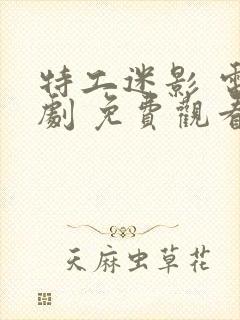 特工迷影 電
劇 免費觀看
天麻虫草花